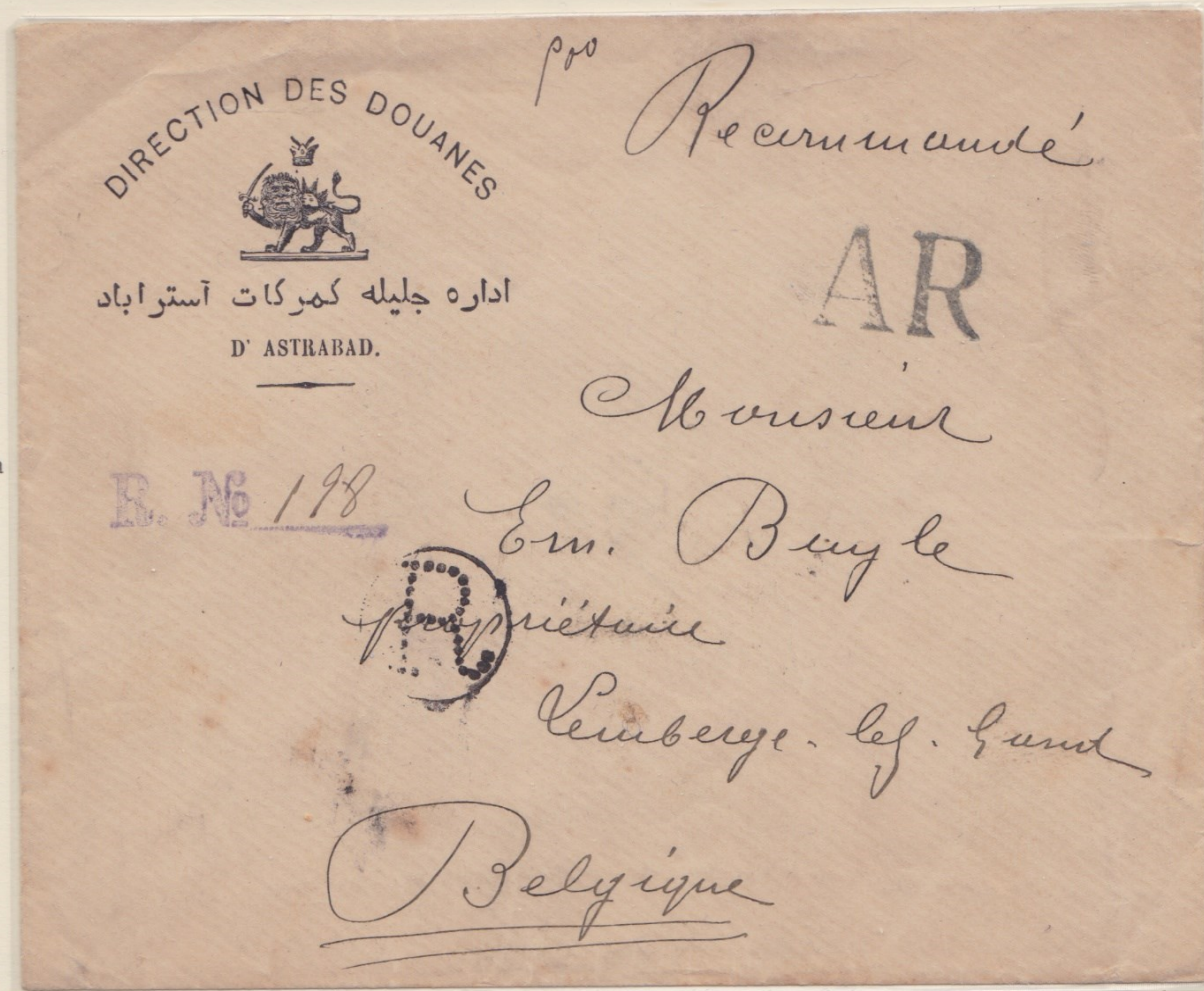 DIRECTION DES DOUANES
اداره جليله كمركات آستراباد
D' ASTRABAD.
Recommandé
AR
Monsieur
R. № 198
Em. Buyle
R
propriétaire
Lemberge - lez - Gand
Belgique